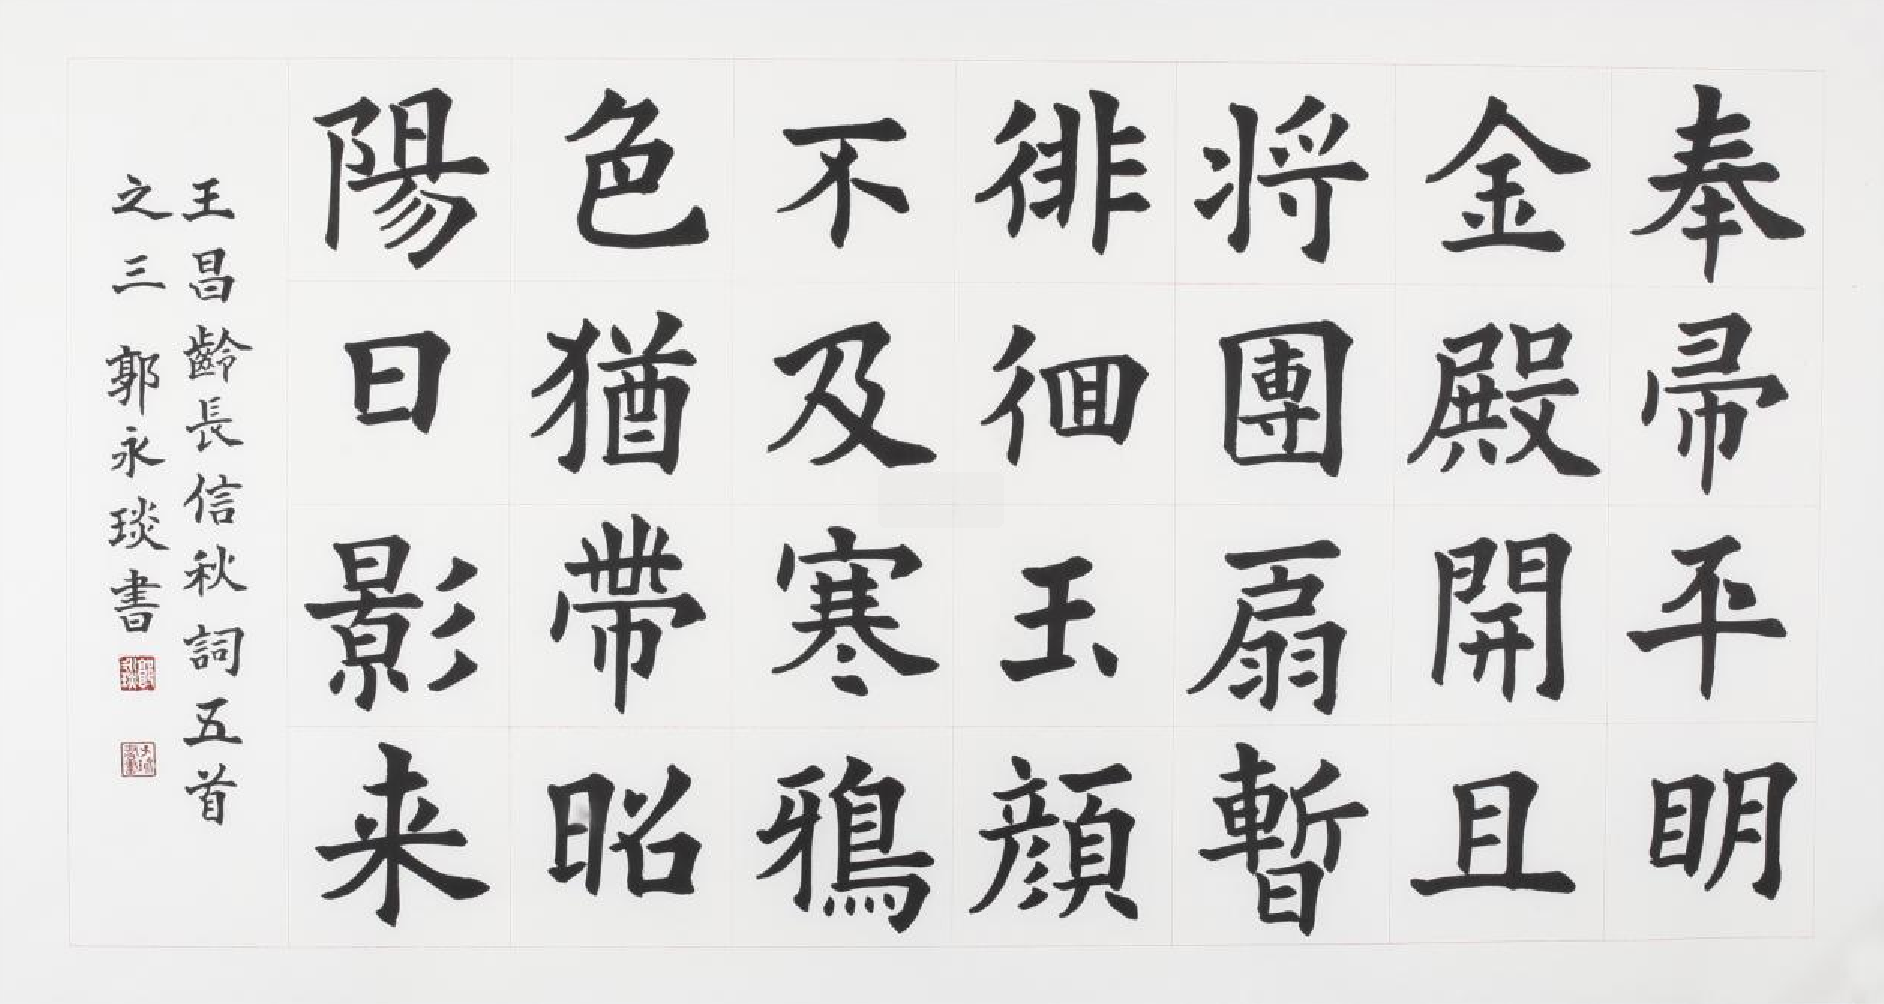 奉帚平明
金殿開且
将團扇暫
徘徊玉顏
不及寒鴉
色猶帶昭
陽日影来
王昌齡長信秋詞五首
之三 郭永琰書